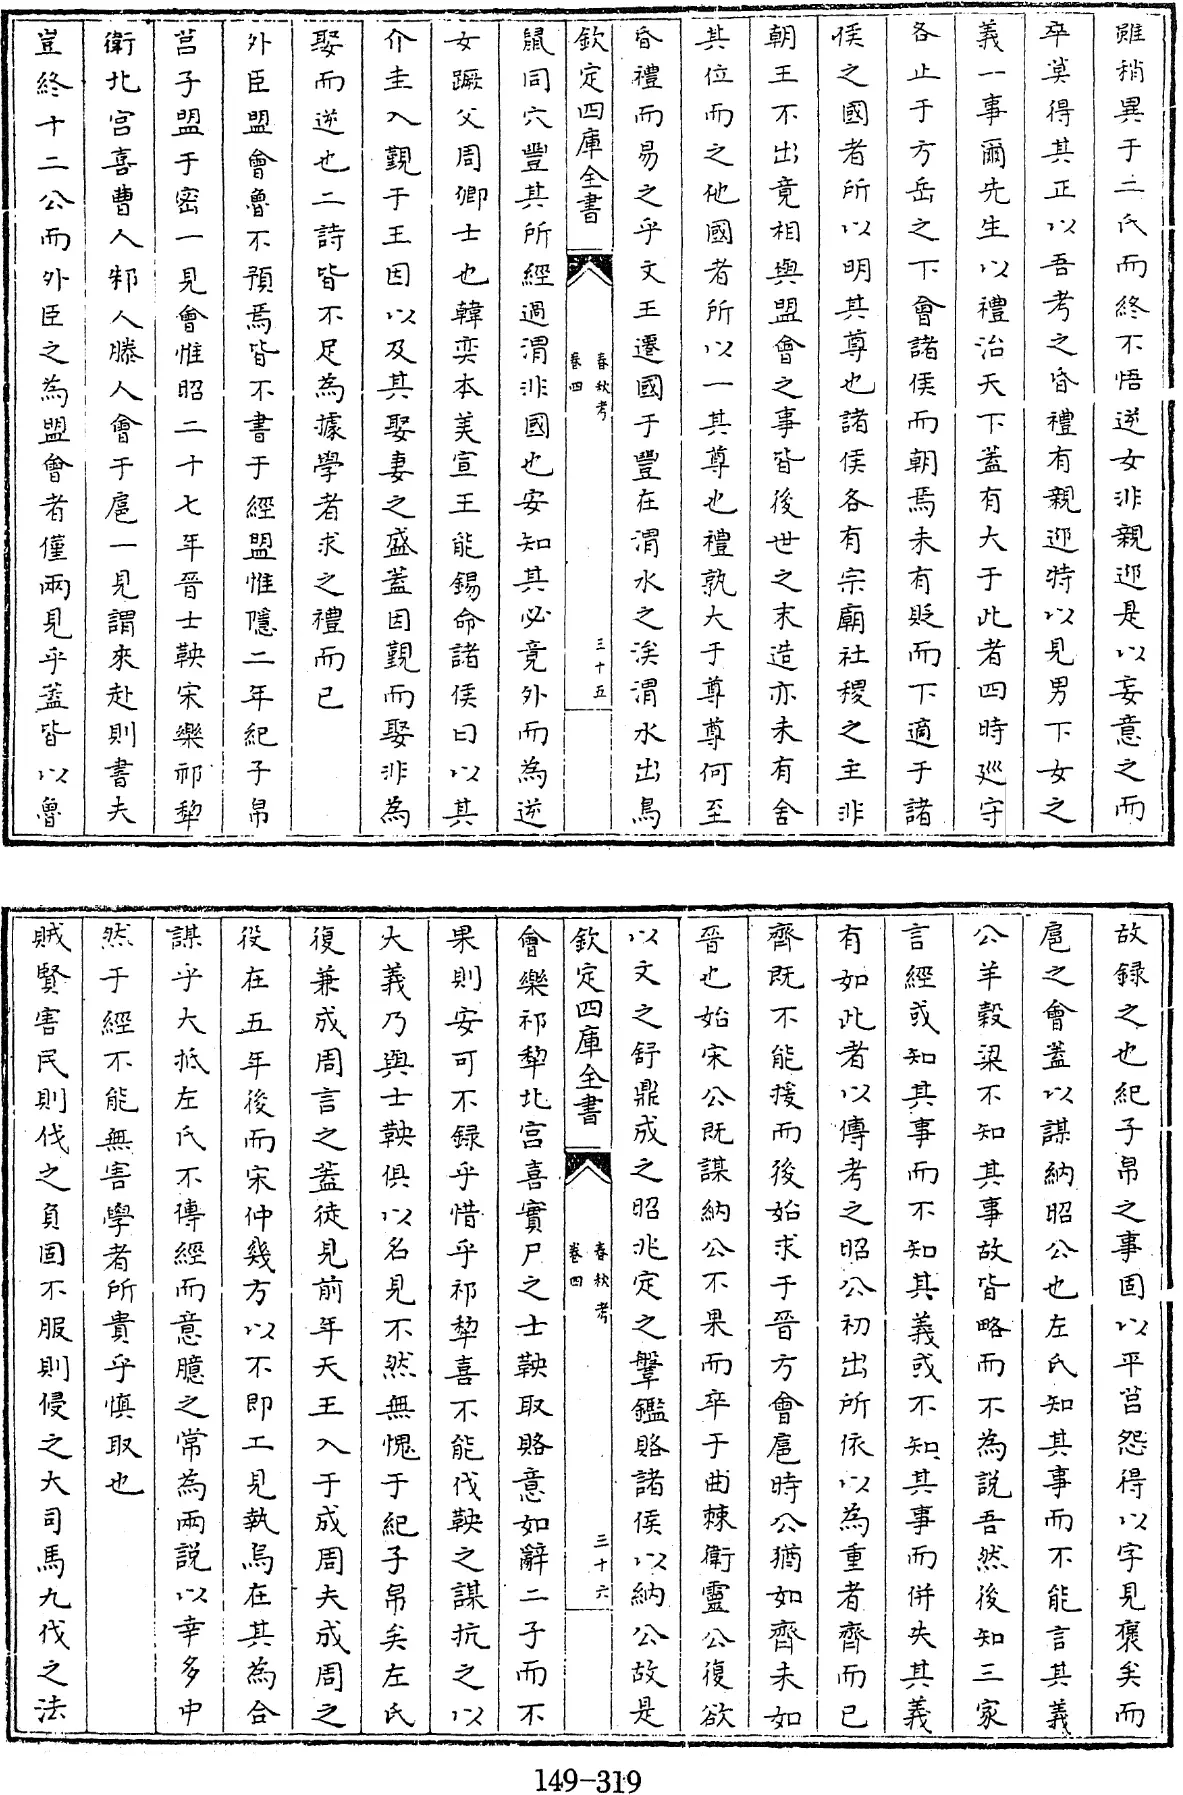 雖稍異于二氏而終不悟逆女非親迎是以妄意之而
卒莫得其正以吾考之昏禮有親迎特以見男下女之
義一事爾先生以禮治天下蓋有大于此者四時廵守
各止于方岳之下會諸侯而朝焉未有貶而下適于諸
侯之國者所以明其尊也諸侯各有宗廟社稷之主非
朝王不出竟相與盟會之事皆後世之末造亦未有舍
其位而之他國者所以一其尊也禮孰大于尊尊何至
昏禮而易之乎文王遷國于豐在渭水之涘渭水出鳥
欽定四庫全書
春秋考
卷四
三十五
鼠同穴豐其所經過渭非國也安知其必竟外而為逆
女蹶父周卿士也韓奕本美宣王能錫命諸侯曰以其
介圭入覲于王因以及其娶妻之盛蓋因覲而娶非為
娶而逆也二詩皆不足為據學者求之禮而已
外臣盟會魯不預焉皆不書于經盟惟隱二年紀子帛
莒子盟于密一見會惟昭二十七年晉士鞅宋樂祁犂
衛北宮喜曹人邾人滕人會于扈一見謂來赴則書夫
豈終十二公而外臣之為盟會者僅兩見乎蓋皆以魯
故録之也紀子帛之事固以平莒怨得以字見褒矣而
扈之會蓋以謀納昭公也左氏知其事而不能言其義
公羊穀梁不知其事故皆略而不為說吾然後知三家
言經或知其事而不知其義或不知其事而併失其義
有如此者以傳考之昭公初出所依以為重者齊而已
齊既不能援而後始求于晉方會扈時公猶如齊未如
晉也始宋公既謀納公不果而卒于曲棘衛靈公復欲
以文之舒鼎成之昭兆定之鞶鑑賂諸侯以納公故是
欽定四庫全書
春秋考
卷四
三十六
會樂祁犂北宮喜實尸之士鞅取賂意如辭二子而不
果則安可不録乎惜乎祁犂喜不能伐鞅之謀抗之以
大義乃與士鞅俱以名見不然無愧于紀子帛矣左氏
復兼成周言之蓋徒見前年天王入于成周夫成周之
役在五年後而宋仲幾方以不即工見執烏在其為合
謀乎大抵左氏不傳經而意臆之常為兩說以幸多中
然于經不能無害學者所貴乎慎取也
賊賢害民則伐之負固不服則侵之大司馬九伐之法
149-319